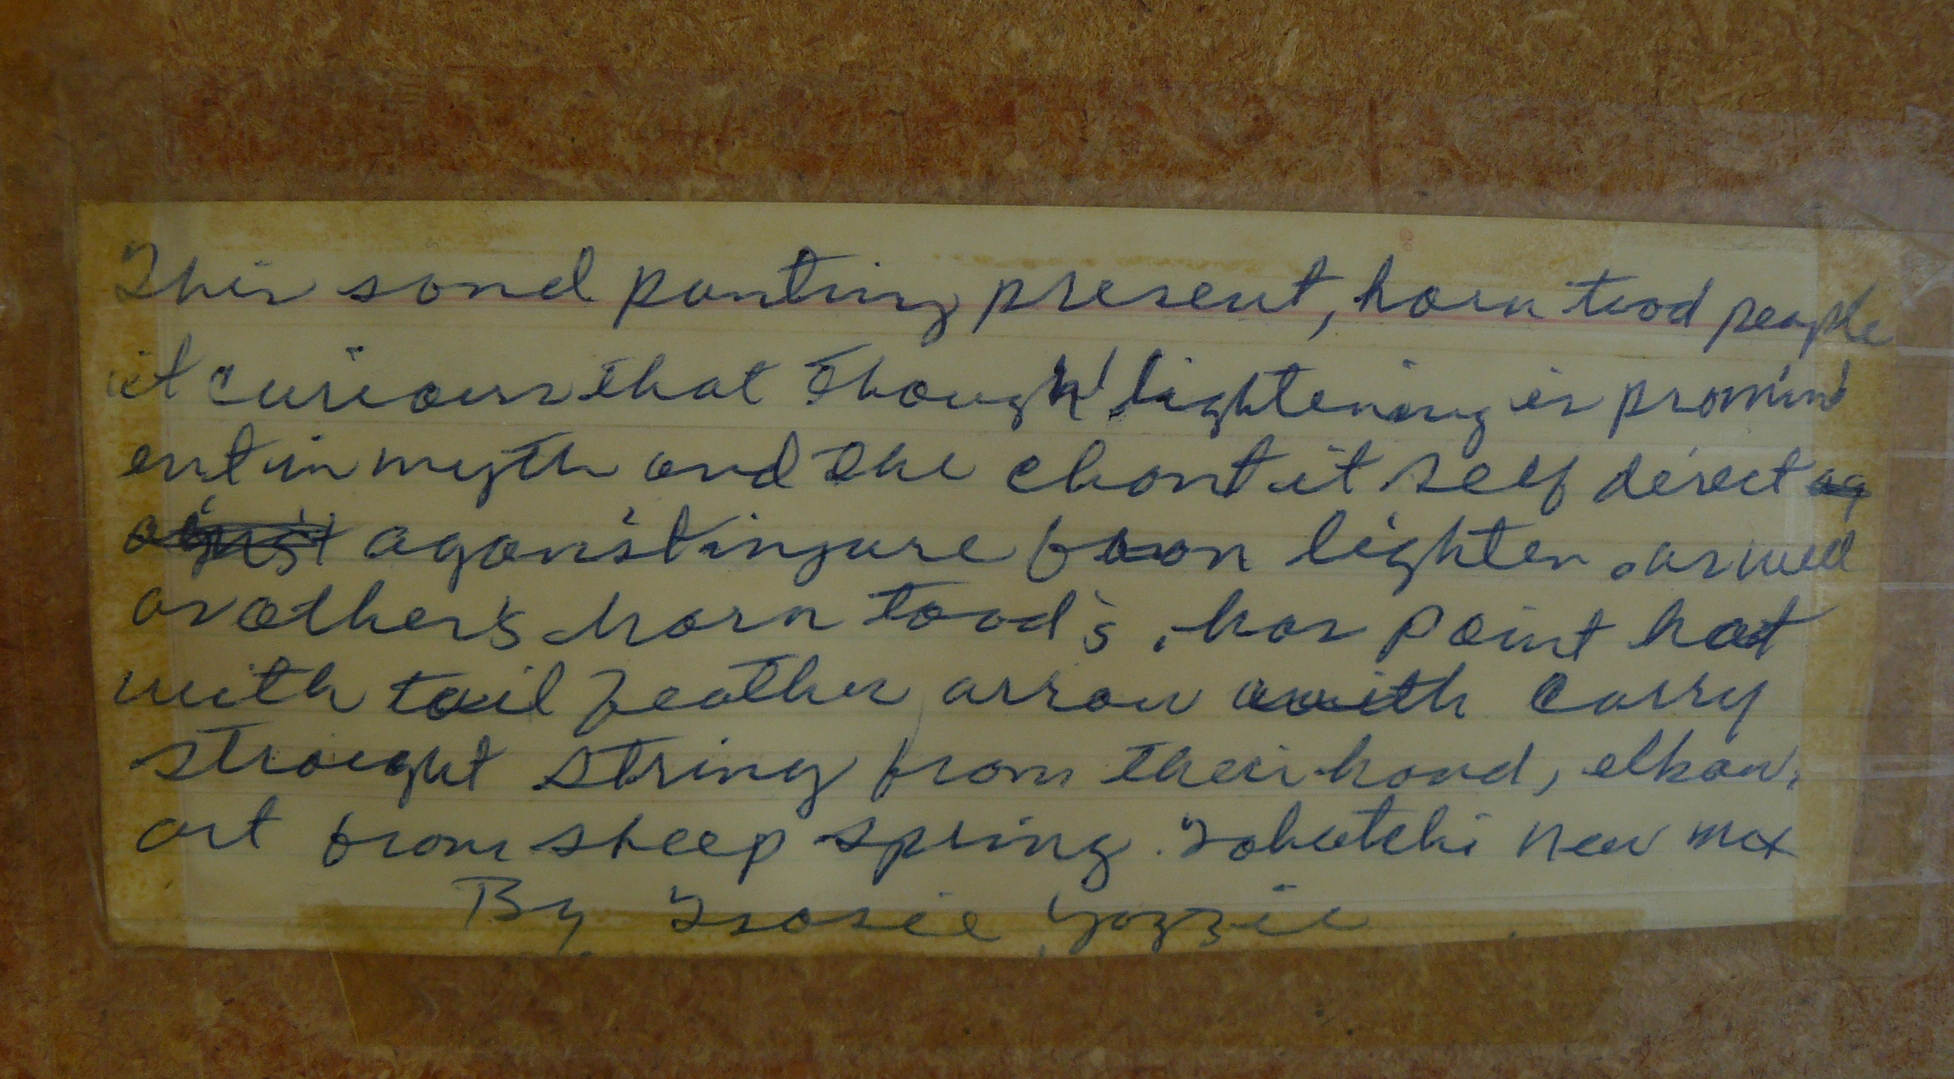 This sand panting present, horn toad people
it curious that though lightening is promin
ent in myth and the chant it self direct
aganist ingure from lighten. as well
as other's horn toad's, has point hat
with tail feather arrow with carry
straight string from their hand, elbow,
art from sheep spring. Tohatchi New Mex
By Tsosie Yazzie